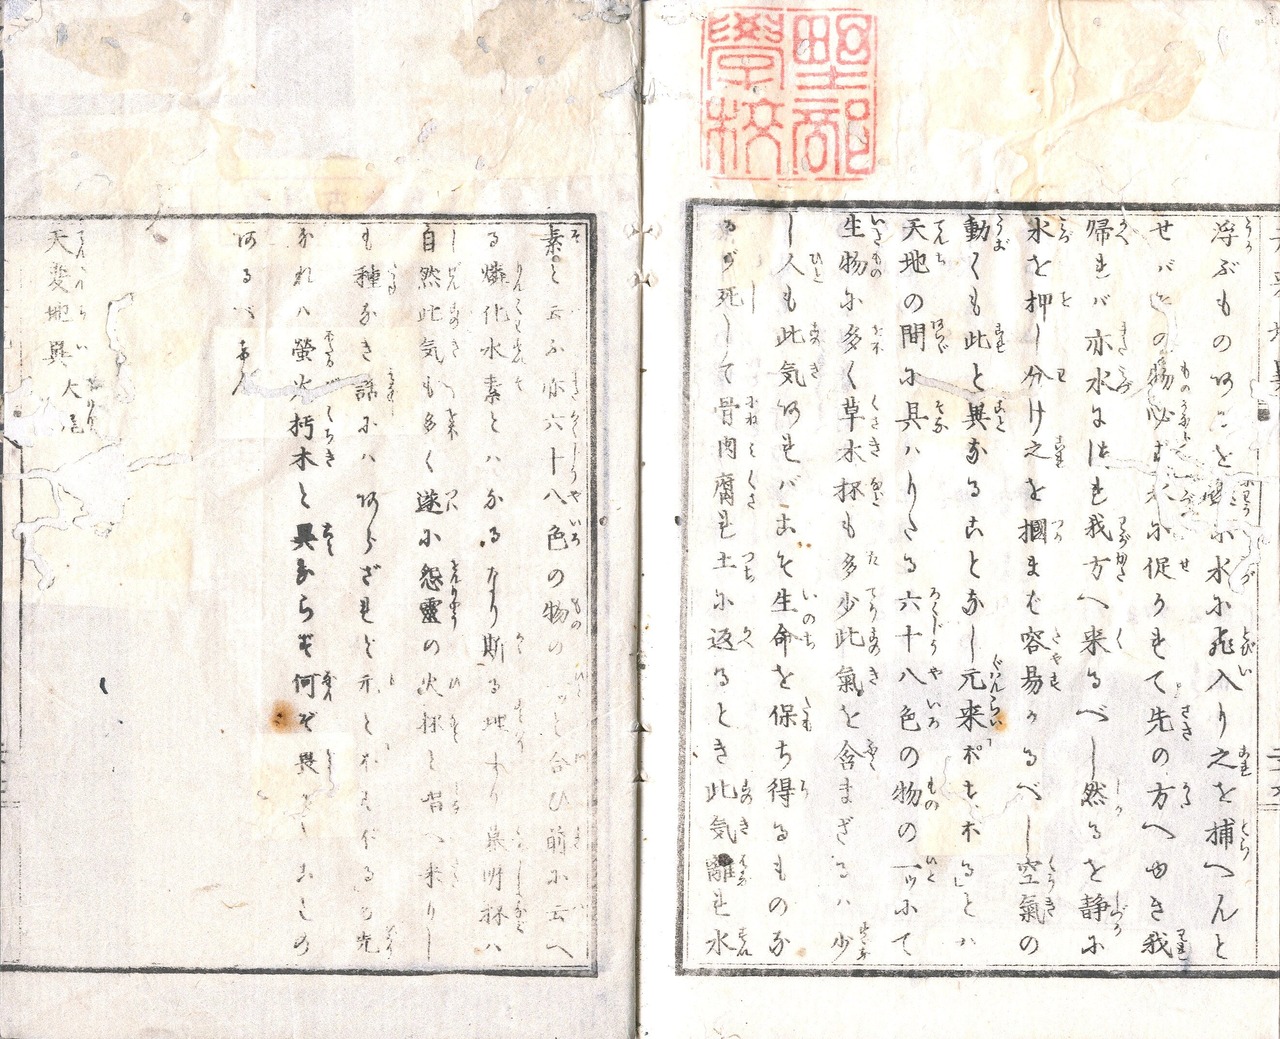 浮ぶものあることを
小水に飛入り之を捕へんと
せバ
の物必ず水に促されて先の方へゆき我
帰れバ亦水に
れ我方へ来るべし然るを静に
水を押し分け之を摑まば容易かるべし空氣の
動くも此と異なることなし元来ポスホル」とハ
天地の間に具ハりたる六十八色の物の一ツにて
生物に多く草木抔も多少此氣を含まざるハ少
し人も此気あれバこそ生命を保ち得るものな
るが死して骨肉腐れ土に返るとき此気離れ水
素と云ふ亦六十八色の物の一ツと合ひ前に云へ
る燐化水素とハなるなり斯る地より
墓明抔ハ
自然此気も多く遂に怨靈の火抔と
へ来りし
も種なき話にハあらざれども
光
なれハ螢火朽木と異ならず何ぞ畏るゝことの
あるべけん
天変地異大尾
野部學校